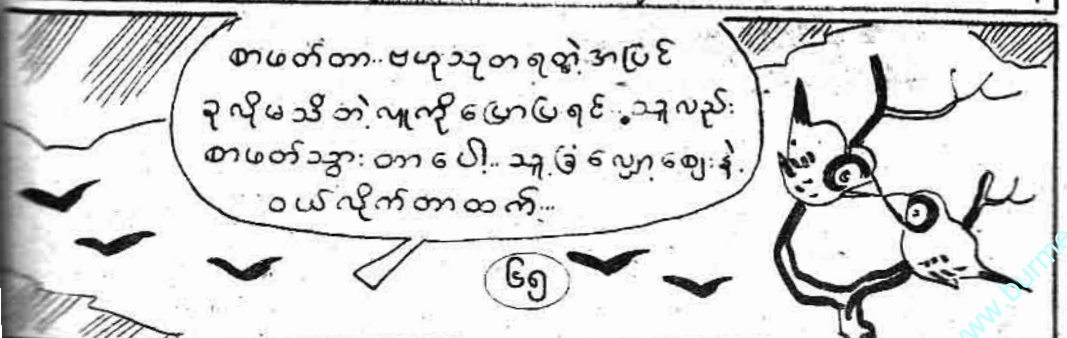 စာဖတ်တာ.. ဗဟုသုတရတဲ့အပြင်
ခုလိုမသိဘဲ့ လူကိုပြောပြရင်.. သူလည်း
စာဖတ်သွားတာပေါ့.. သူ့ခြံလျှော့ဈေးနဲ့
ဝယ်လိုက်တာထက်...
၆၅
www.burme